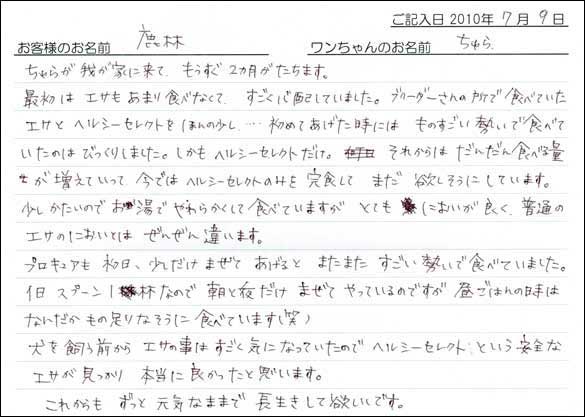 ご記入日 2010年 7月 9日
お客様のお名前 鹿林 ワンちゃんのお名前 ちゅら
ちゅらが我が家に来て、もうすぐ2カ月がたちます。
最初はエサもあまり食べなくて、すごく心配していました。ブリーダーさんの所で食べていた
エサとヘルシーセレクトをほんの少し…初めてあげた時にはものすごい勢いで食べて
いたのはびっくりしました。しかもヘルシーセレクトだけ。それからはだんだん食べる量
が増えていって、今ではヘルシーセレクトのみを完食してまだ欲しそうにしています。
少しかたいのでお湯でやわらかくして食べていますがとてもにおいが良く、普通の
エサのにおいとはぜんぜん違います。
プロキュアも初日、少しだけまぜてあげるとまたまたすごい勢いで食べていました。
1日スプーン1杯なので朝と夜だけまぜてやっているのですが昼ごはんの時は
なんだかもの足りなそうに食べています(笑)
犬を飼う前からエサの事はすごく気になっていたのでヘルシーセレクトという安全な
エサが見つかり本当に良かったと思います。
これからもずっと元気なままで長生きして欲しいです。